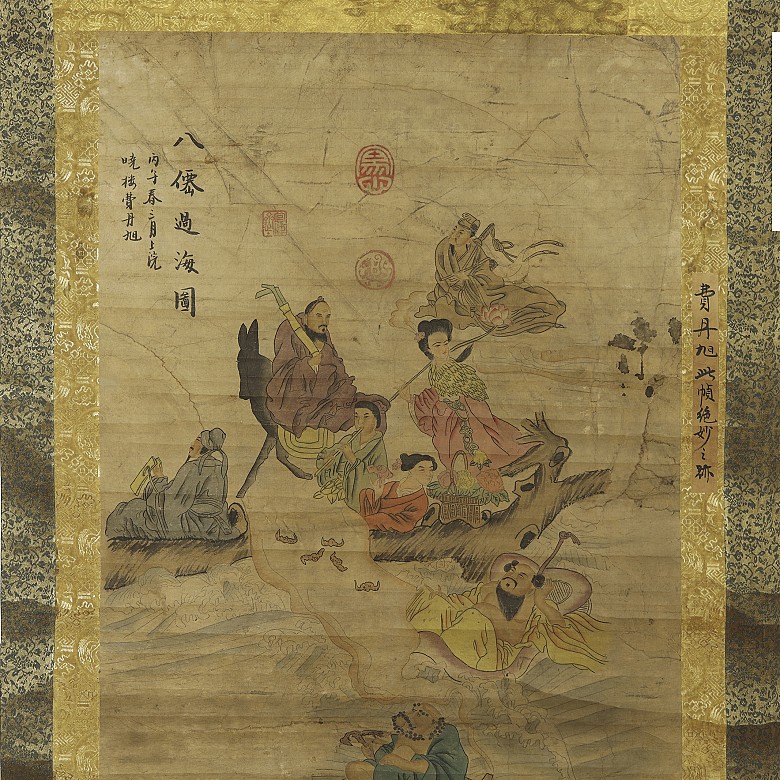 八僊過海圖
丙午春三月上浣
曉樓費丹旭
費丹旭此幀絕妙之跡